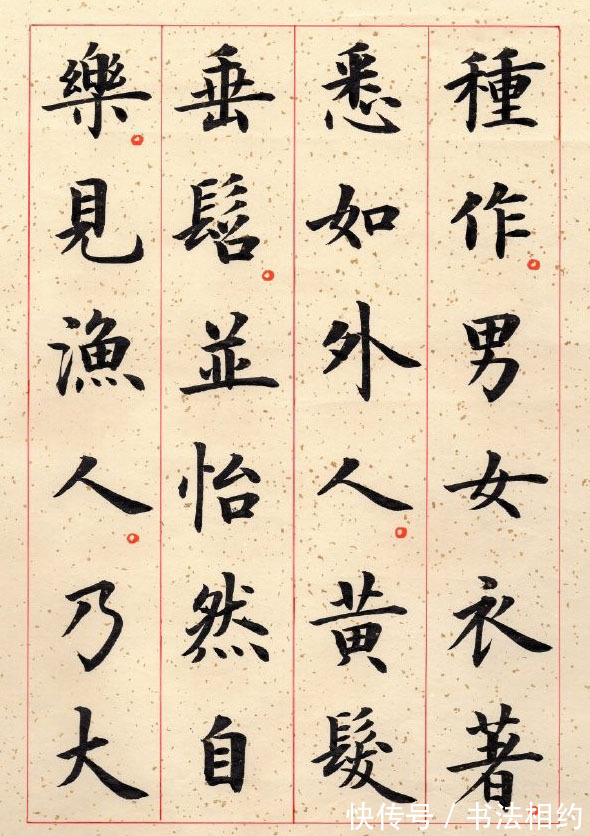 種作男女衣著
悉如外人黃髮
垂髫並怡然自
樂見漁人乃大
快传号 / 书法相约